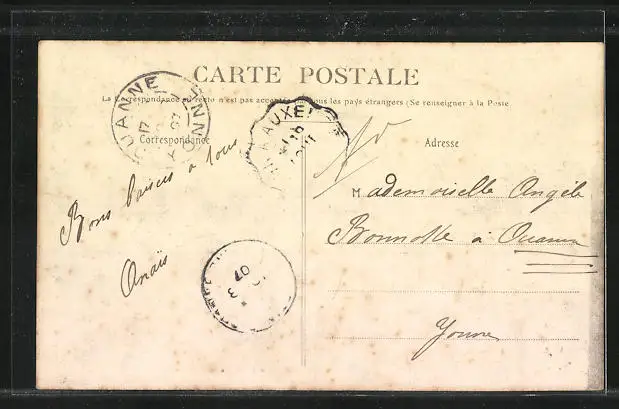 CARTE POSTALE
La Correspondance au recto n'est pas acceptée par tous les pays étrangers (Se renseigner à la Poste
Correspondance
Adresse
OUANNE YONNE
AUXE
Bons baisers à tous
Anaïs
Mademoiselle Angèle
Bonnotte à Ouanne
Yonne
07